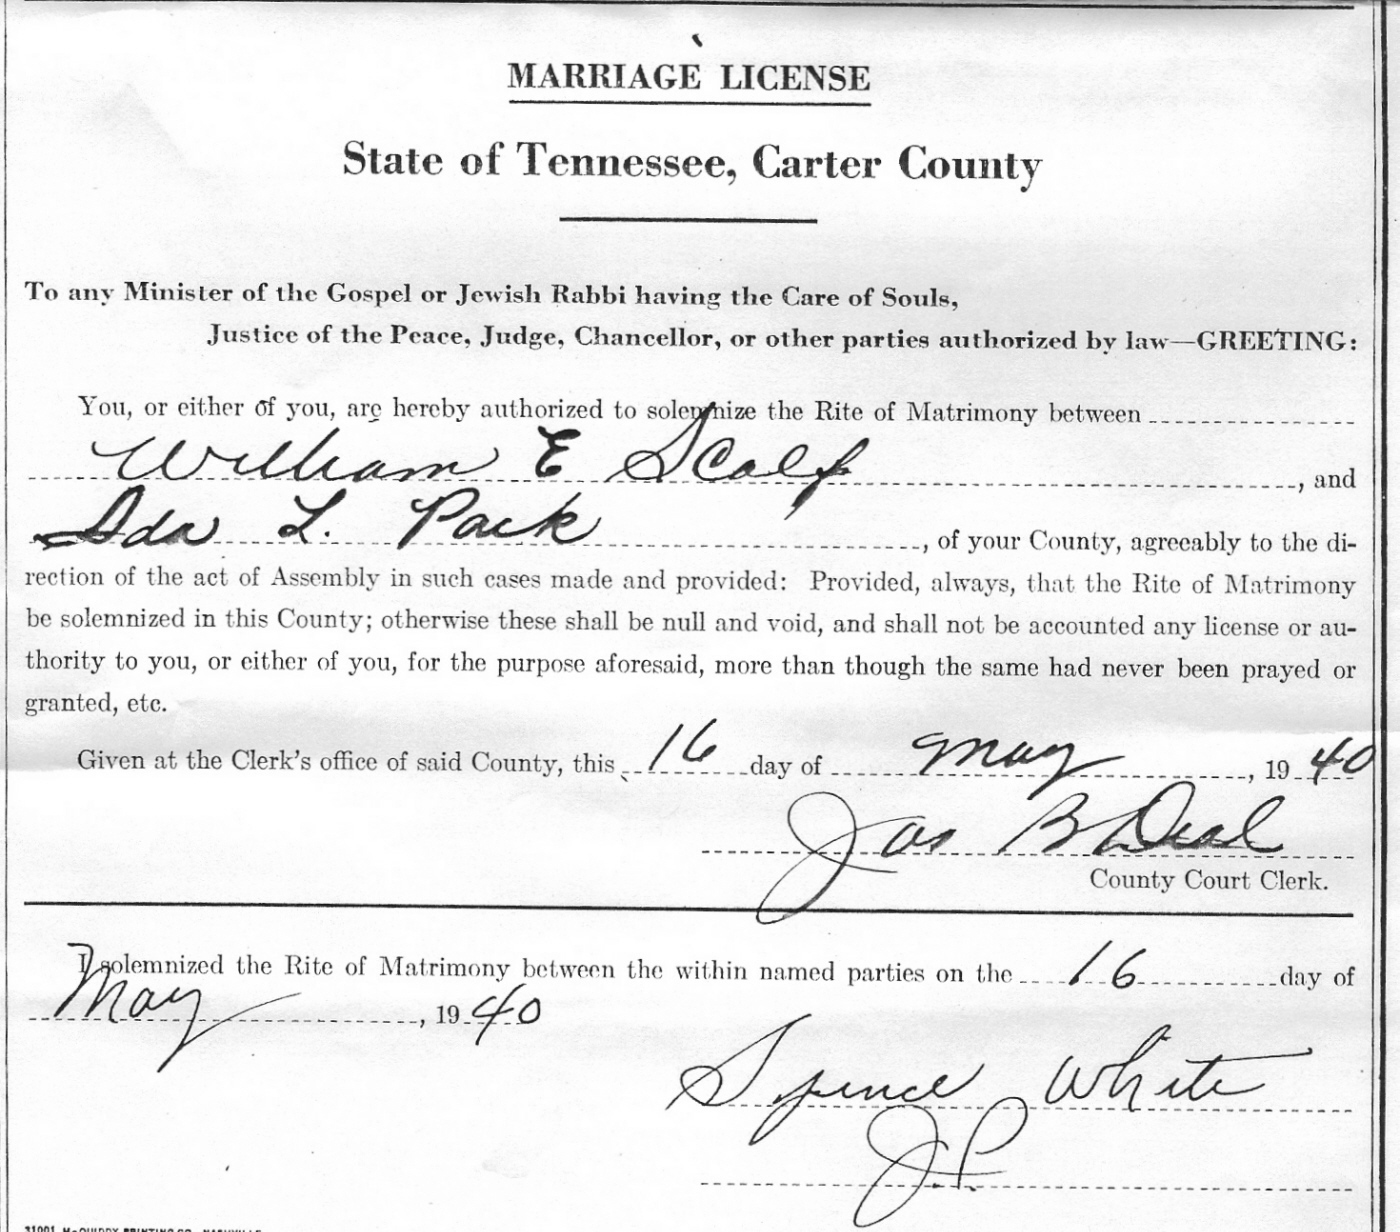 MARRIAGE LICENSE
State of Tennessee, Carter County
To any Minister of the Gospel or Jewish Rabbi having the Care of Souls,
Justice of the Peace, Judge, Chancellor, or other parties authorized by law—GREETING:
You, or either of you, are hereby authorized to solemnize the Rite of Matrimony between
William E Scalf, and
Ida L. Pack, of your County, agreeably to the di-
rection of the act of Assembly in such cases made and provided: Provided, always, that the Rite of Matrimony
be solemnized in this County; otherwise these shall be null and void, and shall not be accounted any license or au-
thority to you, or either of you, for the purpose aforesaid, more than though the same had never been prayed or
granted, etc.
Given at the Clerk's office of said County, this 16 day of May, 1940
Jas B Deal
County Court Clerk.
I solemnized the Rite of Matrimony between the within named parties on the 16 day of
May, 1940
Spence White
J.P.